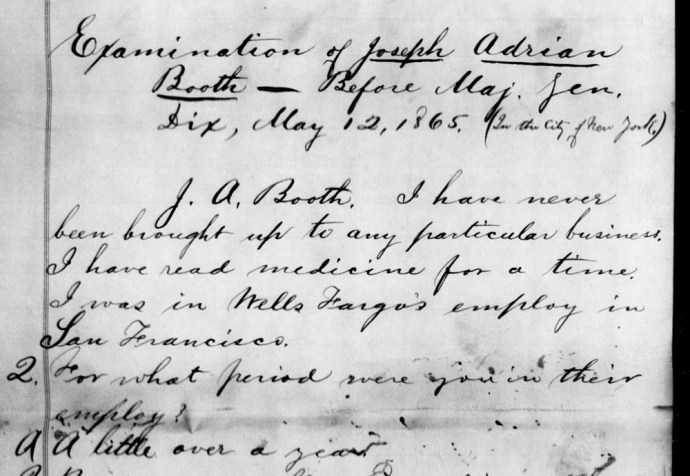 Examination of Joseph Adrian
Booth — Before Maj. Gen.
Dix, May 12, 1865. (In the City of New York.)
J. A. Booth. I have never
been brought up to any particular business.
I have read medicine for a time.
I was in Wells Fargo's employ in
San Francisco.
Q. For what period were you in their
employ?
A A little over a year